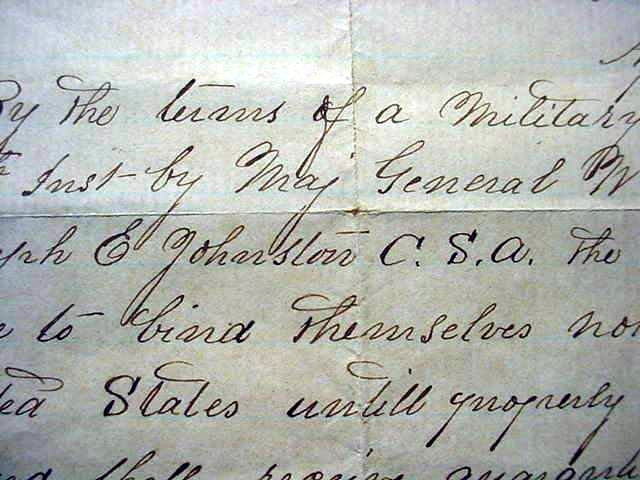 By the terms of a Military
Inst by Maj General W
eph E Johnston C.S.A. the
e to bind themselves not
ted States untill properly
shall receive guarant